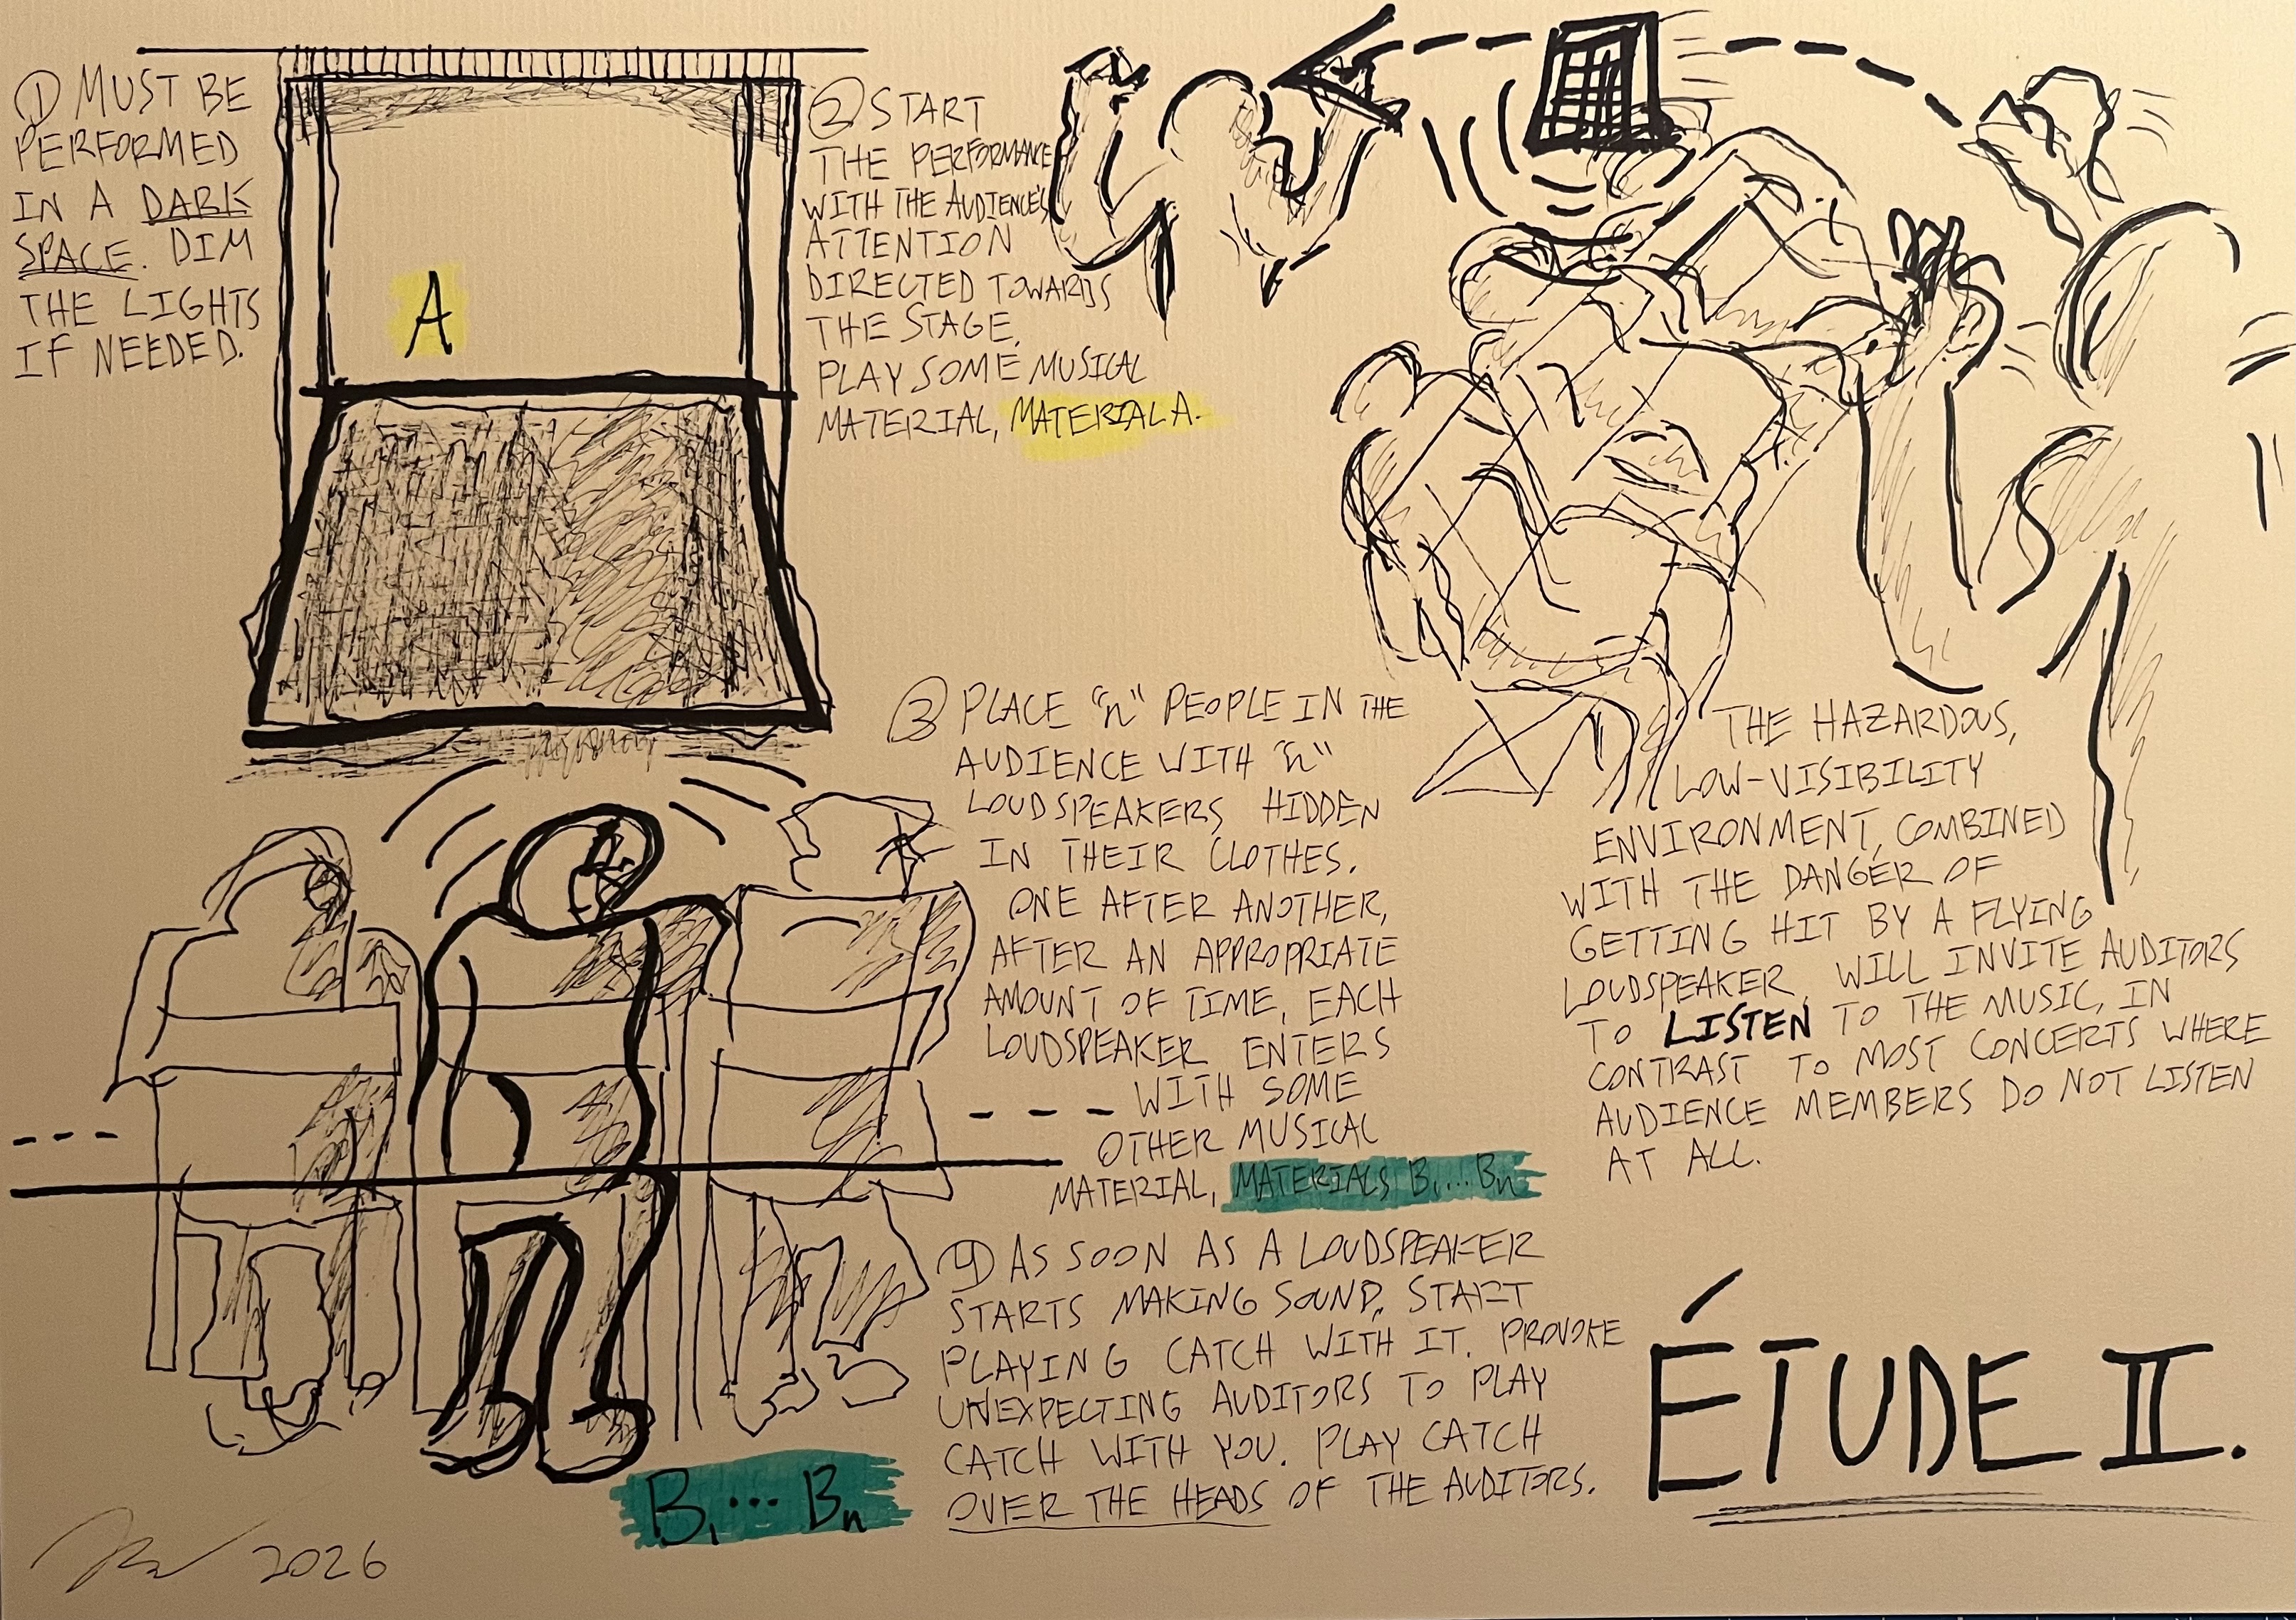 ① MUST BE
PERFORMED
IN A DARK
SPACE. DIM
THE LIGHTS
IF NEEDED.
A
② START
THE PERFORMANCE
WITH THE AUDIENCE'S
ATTENTION
DIRECTED TOWARDS
THE STAGE.
PLAY SOME MUSICAL
MATERIAL, MATERIAL A.
③ PLACE "n" PEOPLE IN THE
AUDIENCE WITH "n"
LOUDSPEAKERS HIDDEN
IN THEIR CLOTHES.
ONE AFTER ANOTHER,
AFTER AN APPROPRIATE
AMOUNT OF TIME, EACH
LOUDSPEAKER ENTERS
WITH SOME
OTHER MUSICAL
MATERIAL, MATERIALS B₁...Bₙ
④ AS SOON AS A LOUDSPEAKER
STARTS MAKING SOUND, START
PLAYING CATCH WITH IT. PROVOKE
UNEXPECTING AUDITORS TO PLAY
CATCH WITH YOU. PLAY CATCH
OVER THE HEADS OF THE AUDITORS.
B₁...Bₙ
THE HAZARDOUS,
LOW-VISIBILITY
ENVIRONMENT, COMBINED
WITH THE DANGER OF
GETTING HIT BY A FLYING
LOUDSPEAKER, WILL INVITE AUDITORS
TO LISTEN TO THE MUSIC, IN
CONTRAST TO MOST CONCERTS WHERE
AUDIENCE MEMBERS DO NOT LISTEN
AT ALL.
ÉTUDE II.
2026